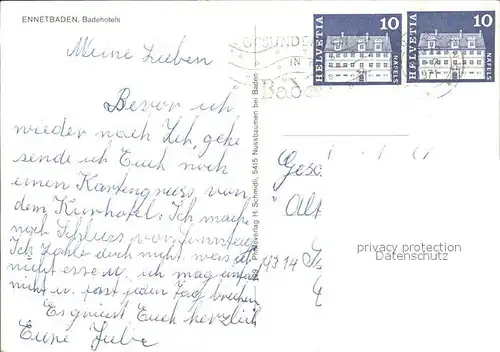 ENNETBADEN, Badehotels
Meine Lieben
Bevor ich
wieder nach Zch. gehe
sende ich Euch noch
einen Kartengruss von
dem Kurhotel. Ich mache
noch Schluss vor Sonntag
Ich zahle doch nicht was ich
nicht esse u. ich mag einfach
nicht u. fast jeden Tag brechen
Es grüsst Euch herzlich
Eure
Photoverlag H. Schmidli, 5415 Nussbaumen bei Baden
HELVETIA 10 NÄFELS
HELVETIA 10 NÄFELS
IN
Baden
Gesc
Alt
9314
privacy protection
Datenschutz